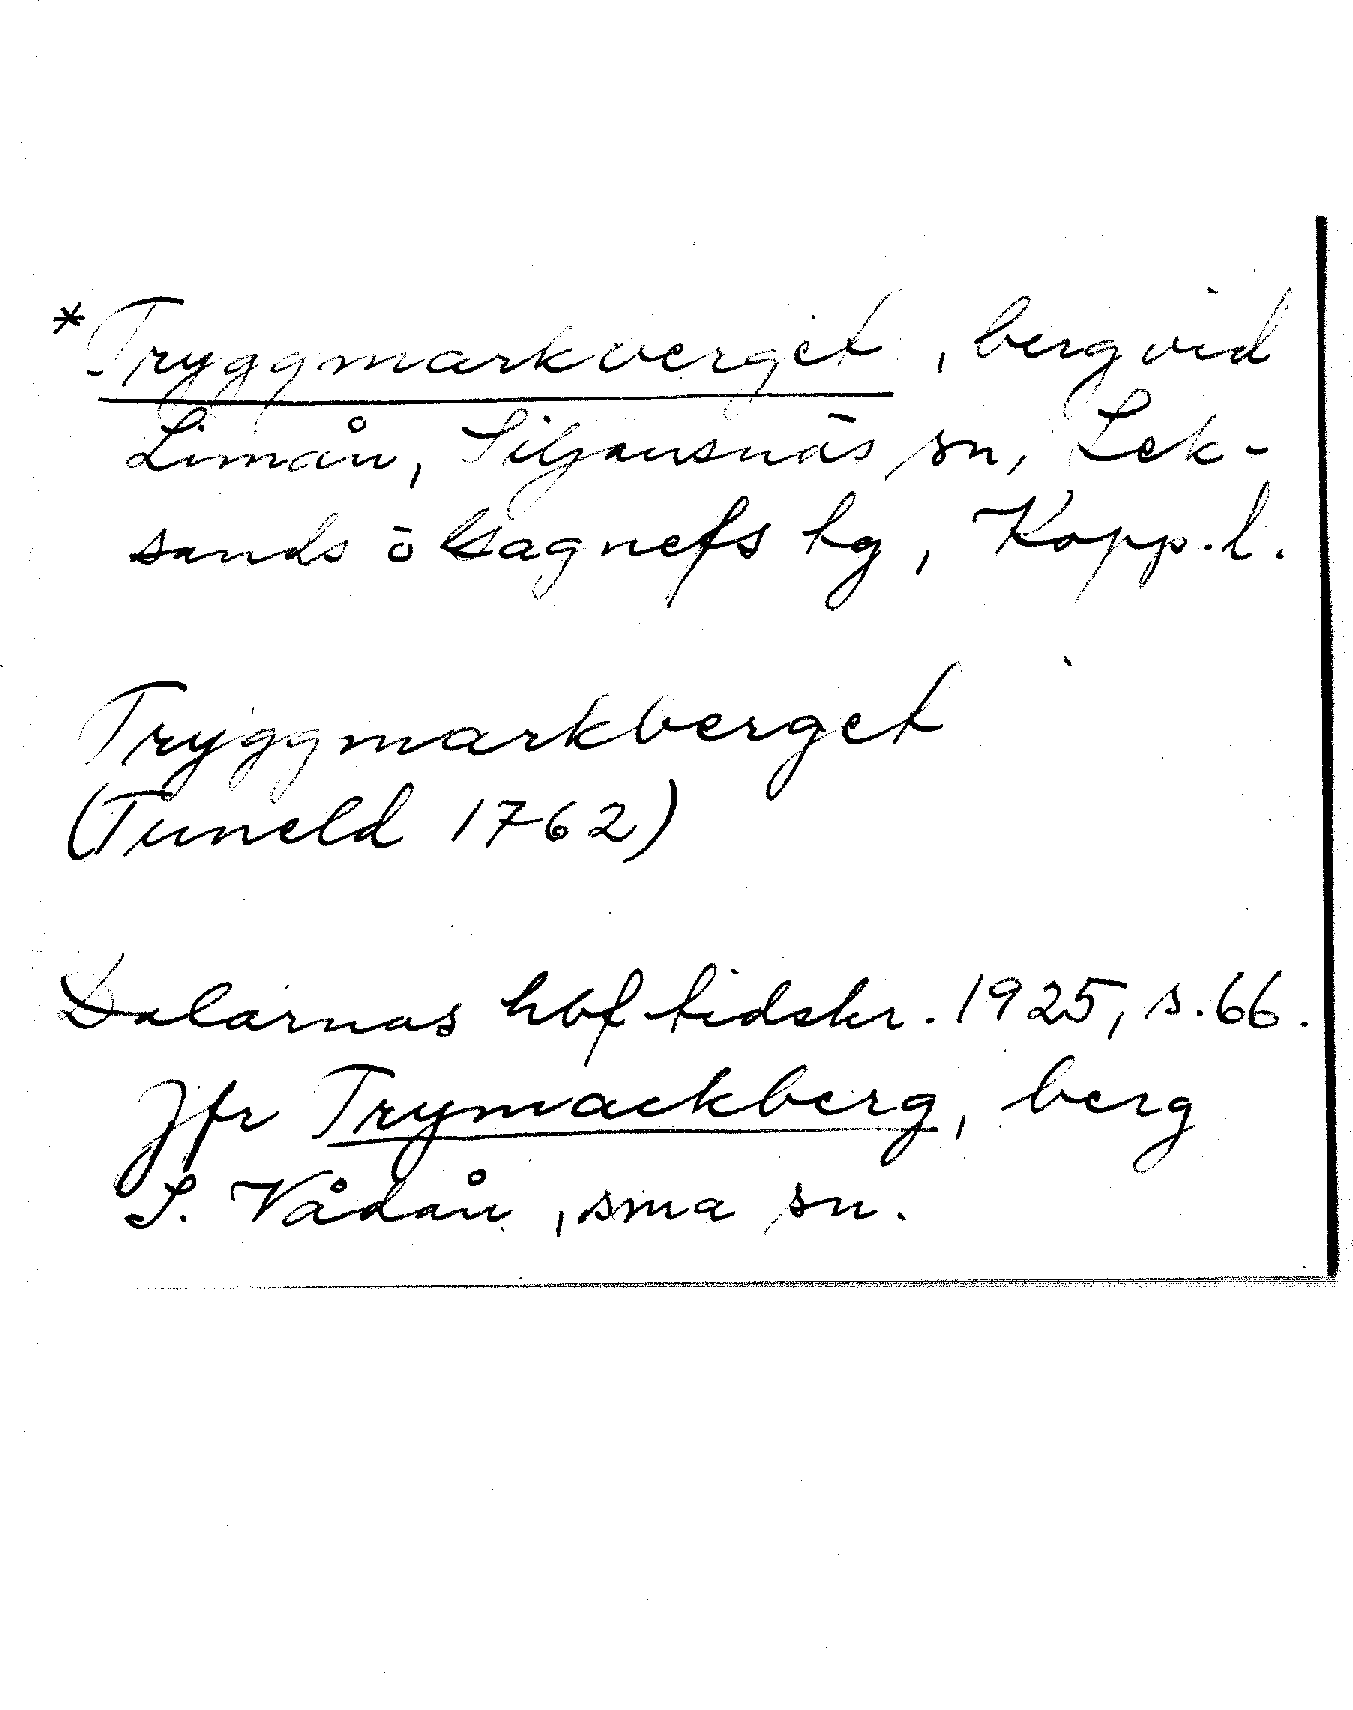 *Tryggmarkberget, berg vid
Limån, Siljansnäs sn, Lek-
sands o Gagnefs hg, Kopp.l.
Tryggmarkberget
(Tuneld 1762)
Dalarnas hbf tidskr. 1925, s.66.
Jfr Trymackberg, berg
S. Vådån, sma sn.